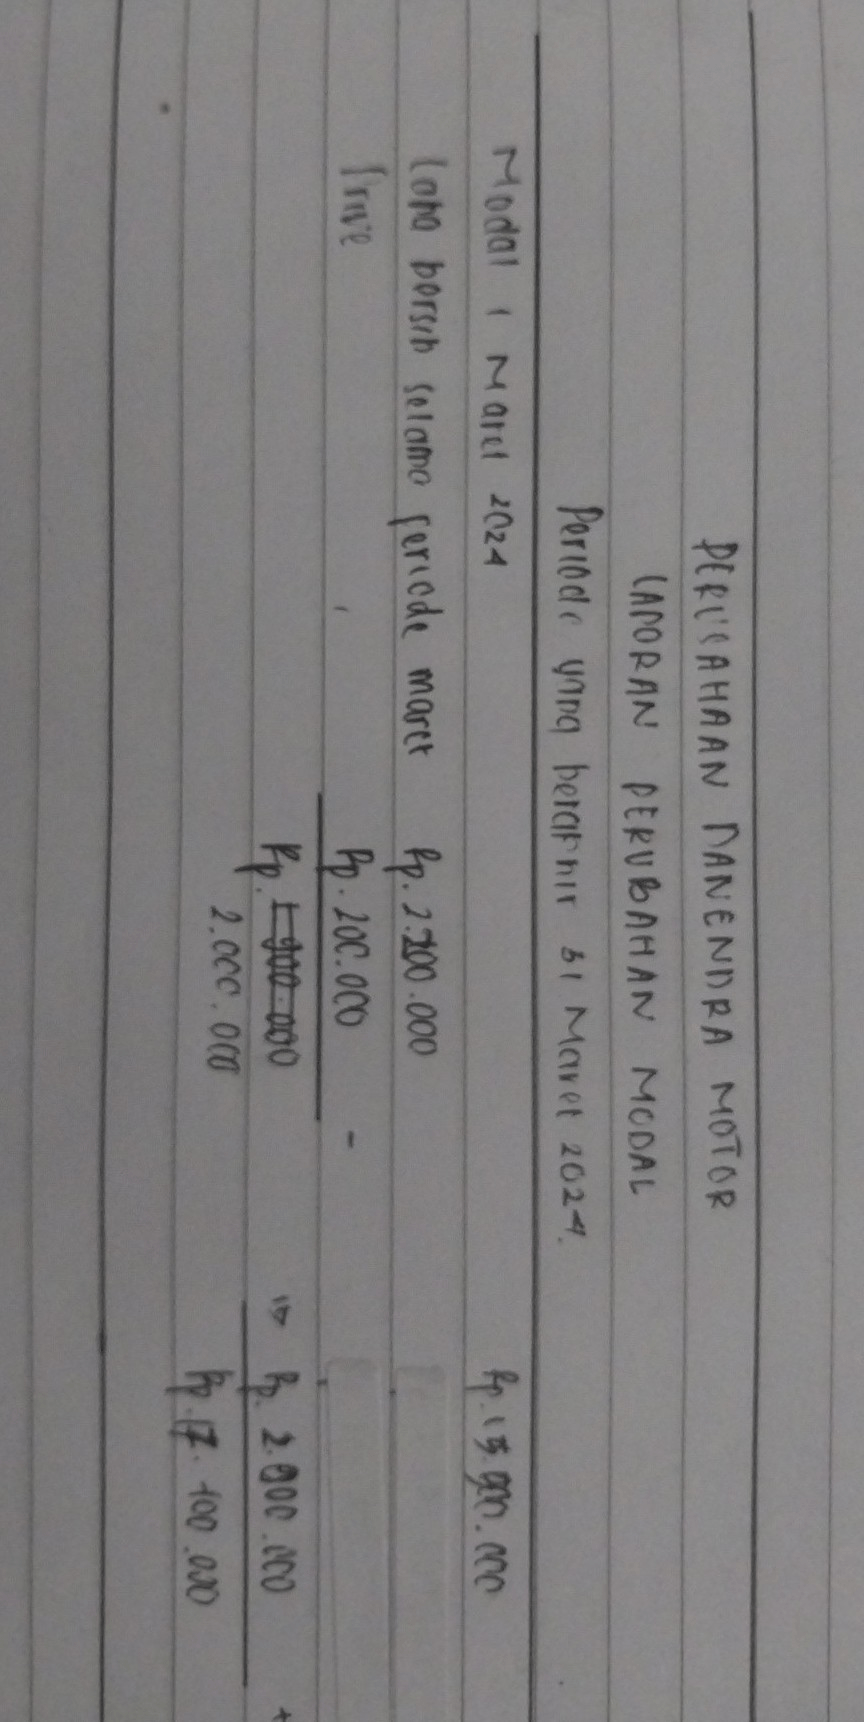 PERUSAHAAN DANENDRA MOTOR
LAPORAN PERUBAHAN MODAL
Periode yang berakhir 31 Maret 2024.
Modal 1 Maret 2024 Rp. 15.
Laba bersih selama periode maret Rp. 2.200.000
Prive Rp. 200.000 -
Rp. 1.900.000 Rp. 2.000.000 +
2.000.000 Rp. 17.400.000